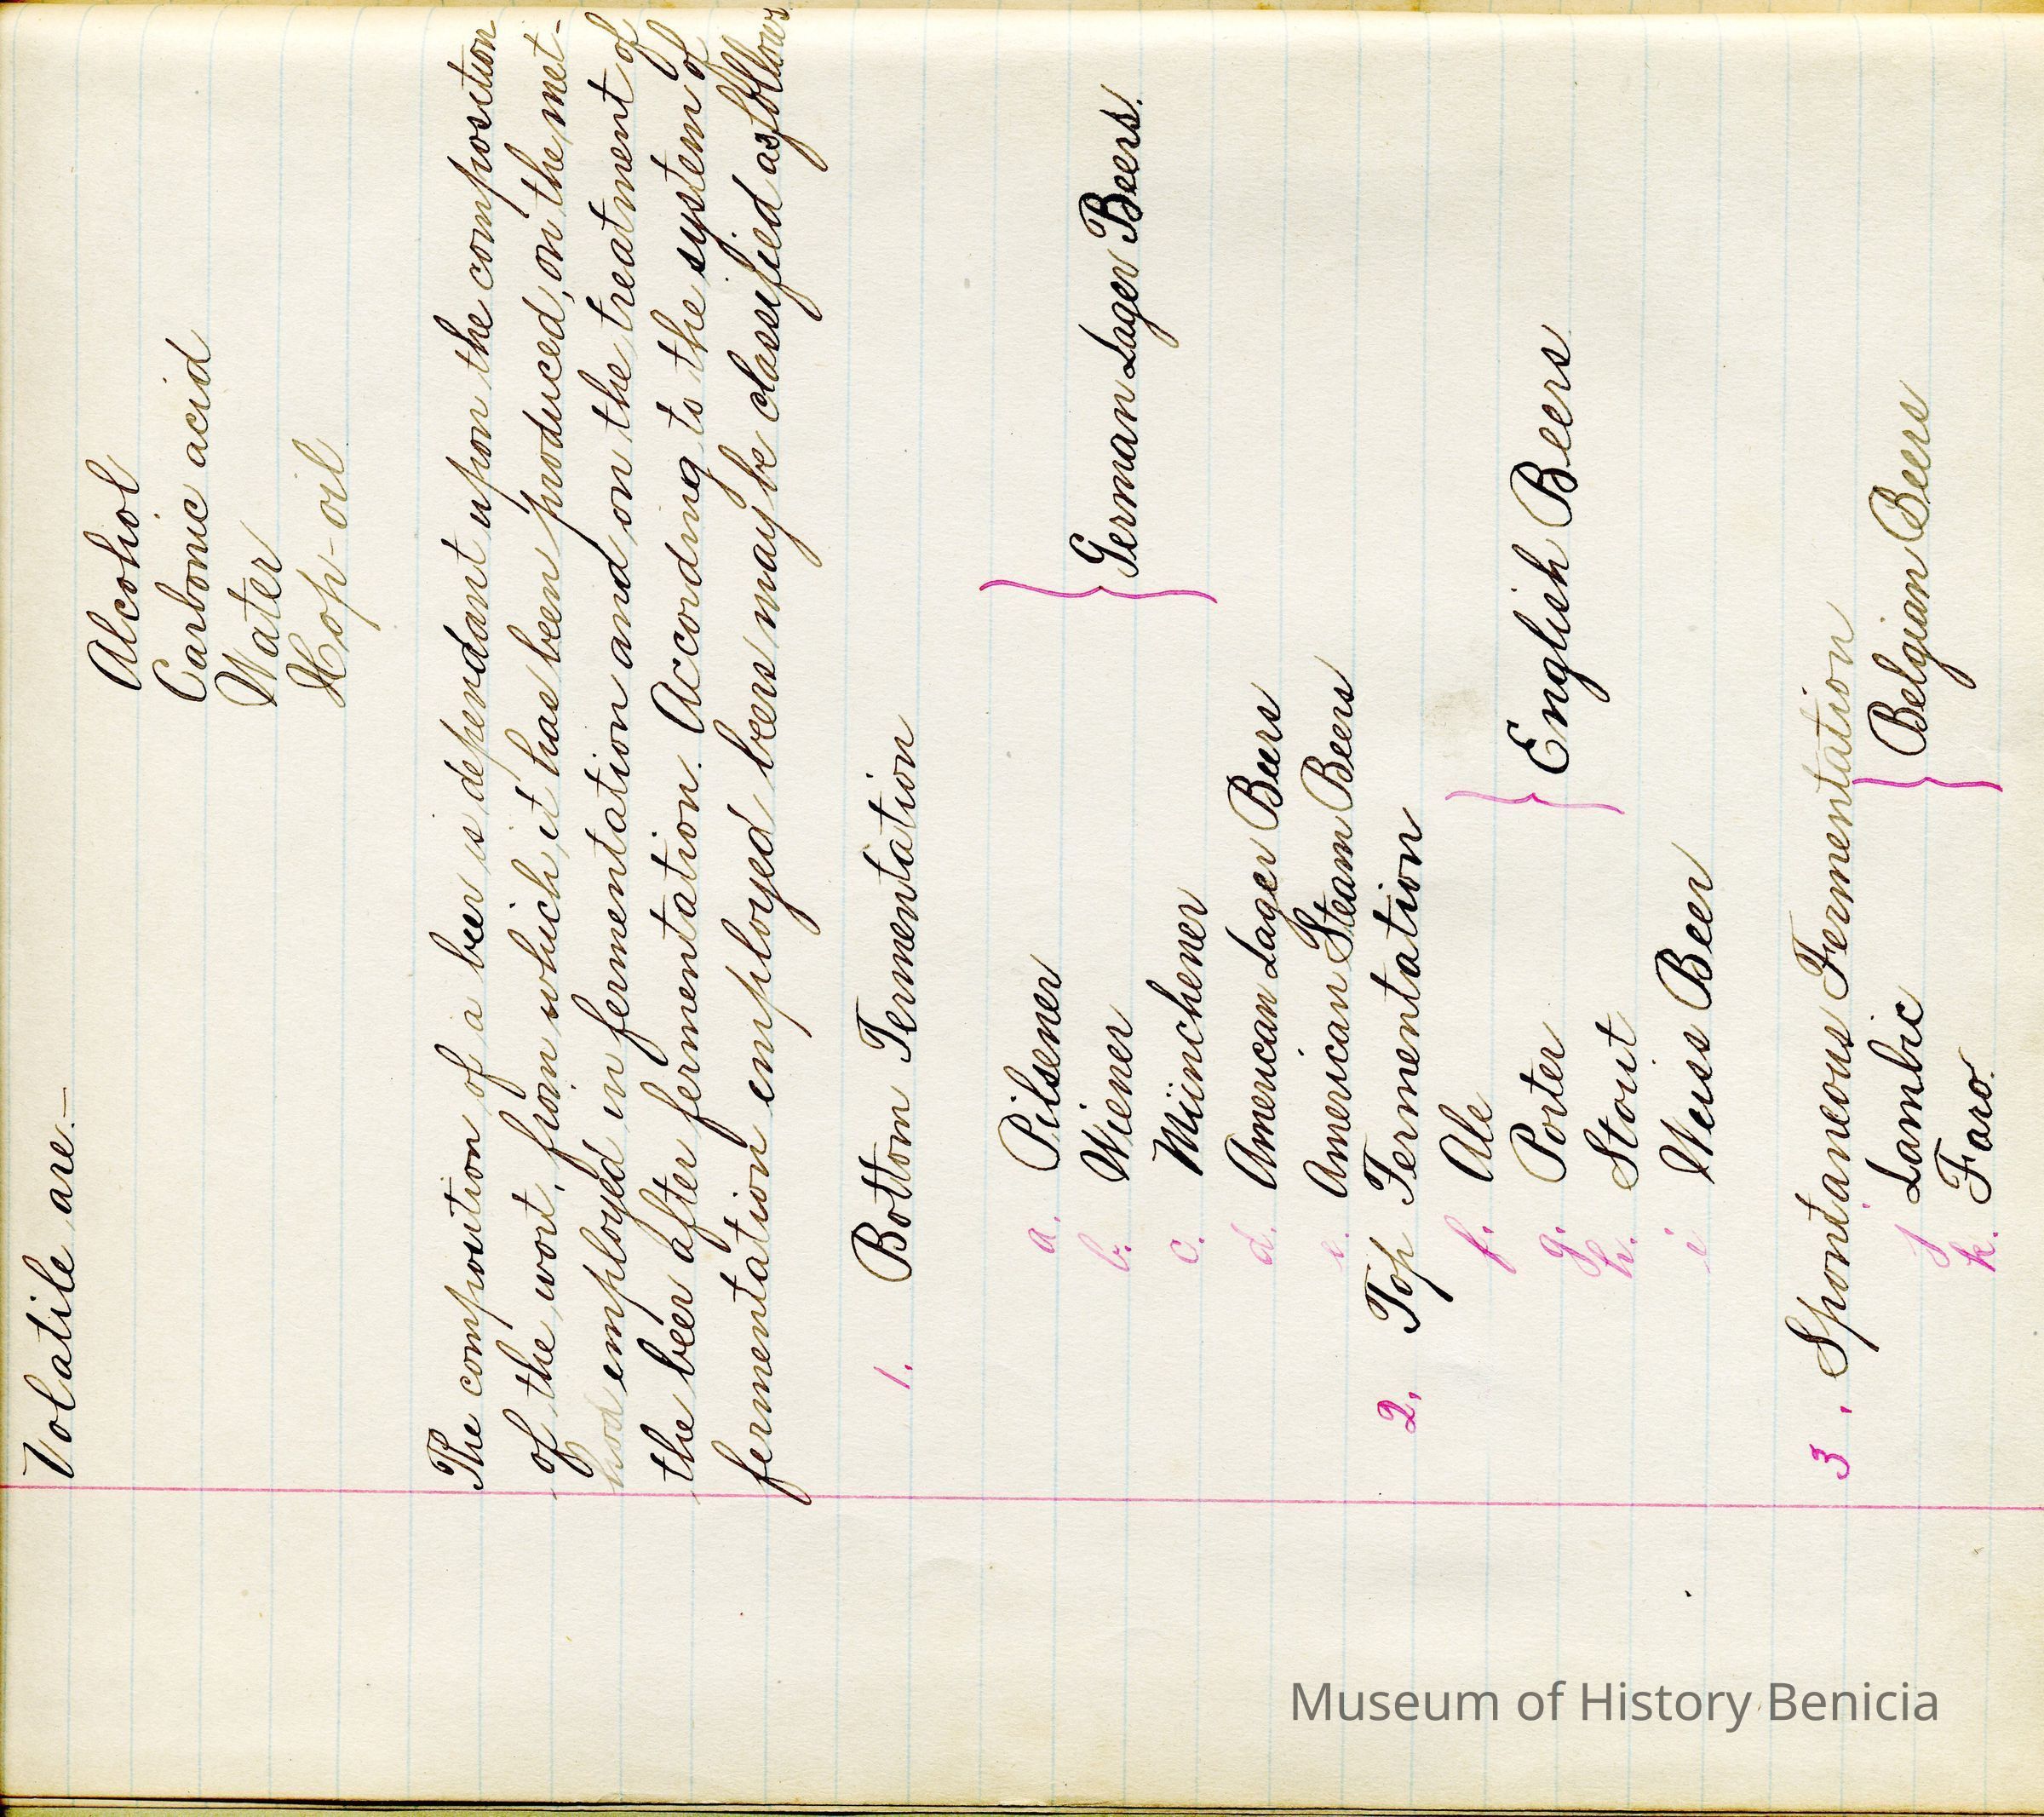 Volatile are.—
Alcohol
Carbonic acid
Water
Hop-oil
The composition of a beer is dependant upon the composition
of the wort, from which it has been produced, on the met-
hod employed in fermentation and on the treatment of
the beer after fermentation. According to the system of
fermentation employed beers may be classified as follows
1. Bottom Fermentation
a. Pilsener
b. Wiener } German Lager Beers.
c. Münchener
d. American Lager Beers
e. American Steam Beers
2. Top Fermentation
f. Ale
g. Porter } English Beers
h. Stout
i Weiss Beer
3. Spontaneous Fermentation
j Lambic } Belgian Beers
k. Faro.
Museum of History Benicia